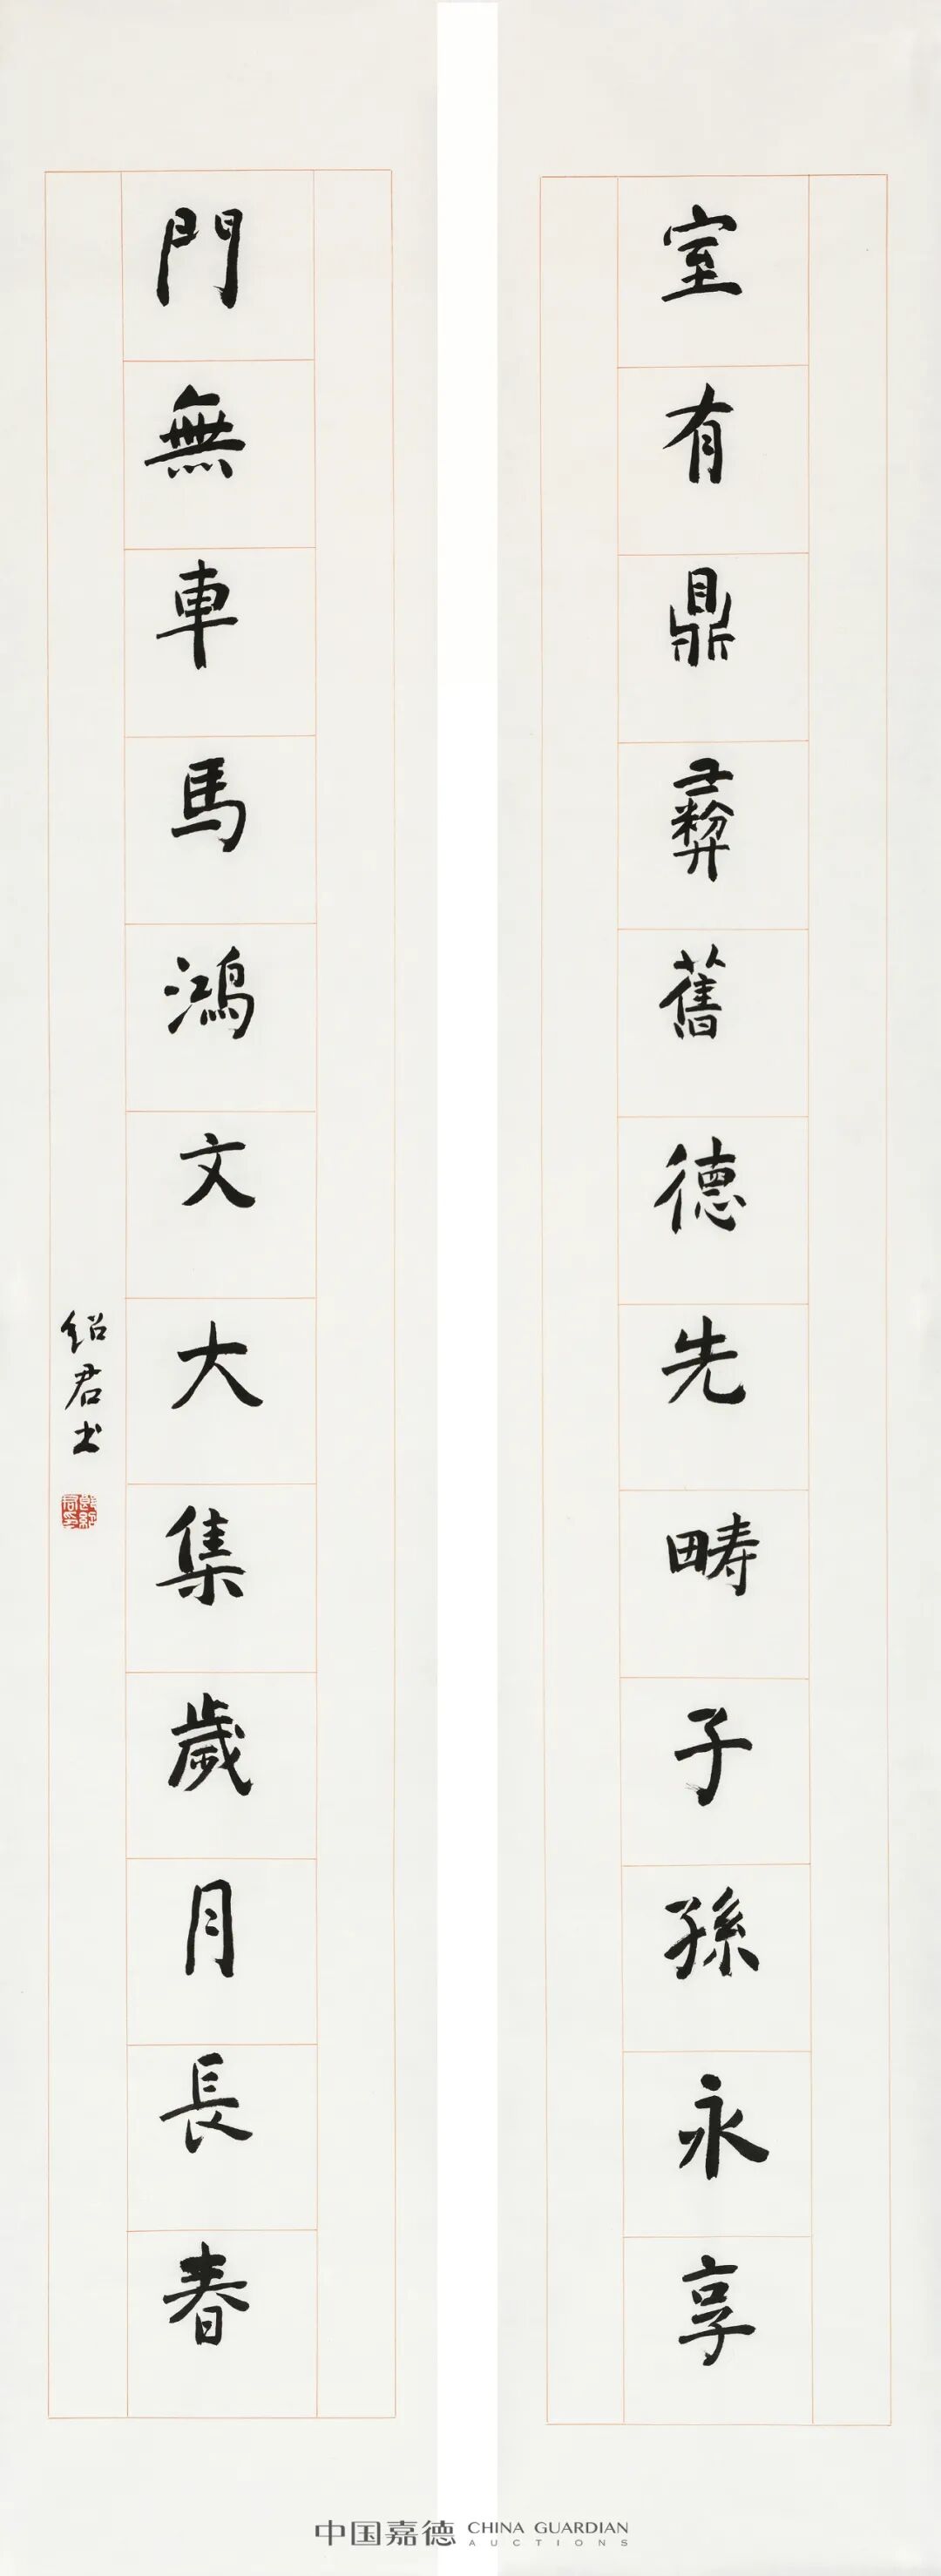 室有鼎彝舊德先疇子孫永享
門無車馬鴻文大集歲月長春
紹君书
中国嘉德 CHINA GUARDIAN
AUCTIONS